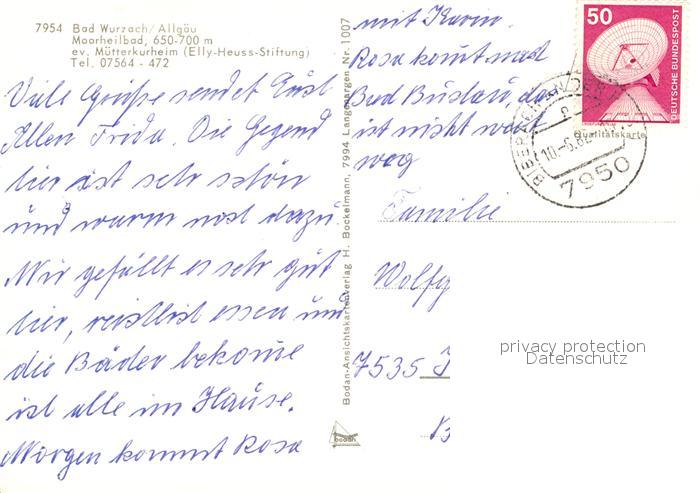 7954 Bad Wurzach/Allgäu
Moorheilbad, 650-700 m
ev. Mütterkurheim (Elly-Heuss-Stiftung)
Tel. 07564 - 472
Viele Grüße sendet Euch
Allen Frida. Die Gegend
hier ist sehr schön
und warm noch dazu.
Mir gefällt es sehr gut
hier, essen und
die Bäder bekome
ich alle im Hause.
Morgen kommt Rosa
mit Karin.
Rosa komt nach
Bad Buchau, das
ist nicht weit
weg
Familie
Wolfg
7535 I
B
Bodan-Ansichtskartenverlag H. Bockelmann, 7994 Langenargen Nr. 1007
bodan
50
DEUTSCHE BUNDESPOST
Qualitätskarte
BIBERACH
10.-6.82
7950
privacy protection
Datenschutz